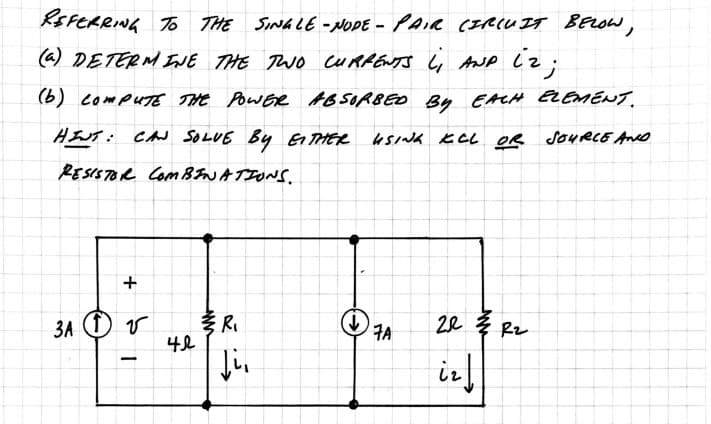 REFERRING TO THE SINGLE-NODE-PAIR CIRCUIT BELOW,
(a) DETERMINE THE TWO CURRENTS i₁ AND i₂;
(b) COMPUTE THE POWER ABSORBED By EACH ELEMENT.
HINT: CAN SOLVE By EITHER USING KCL OR SOURCE AND
RESISTOR COMBINATIONS.
+
3A v R₁ 7A 2Ω R₂
4Ω
− i₁ i₂